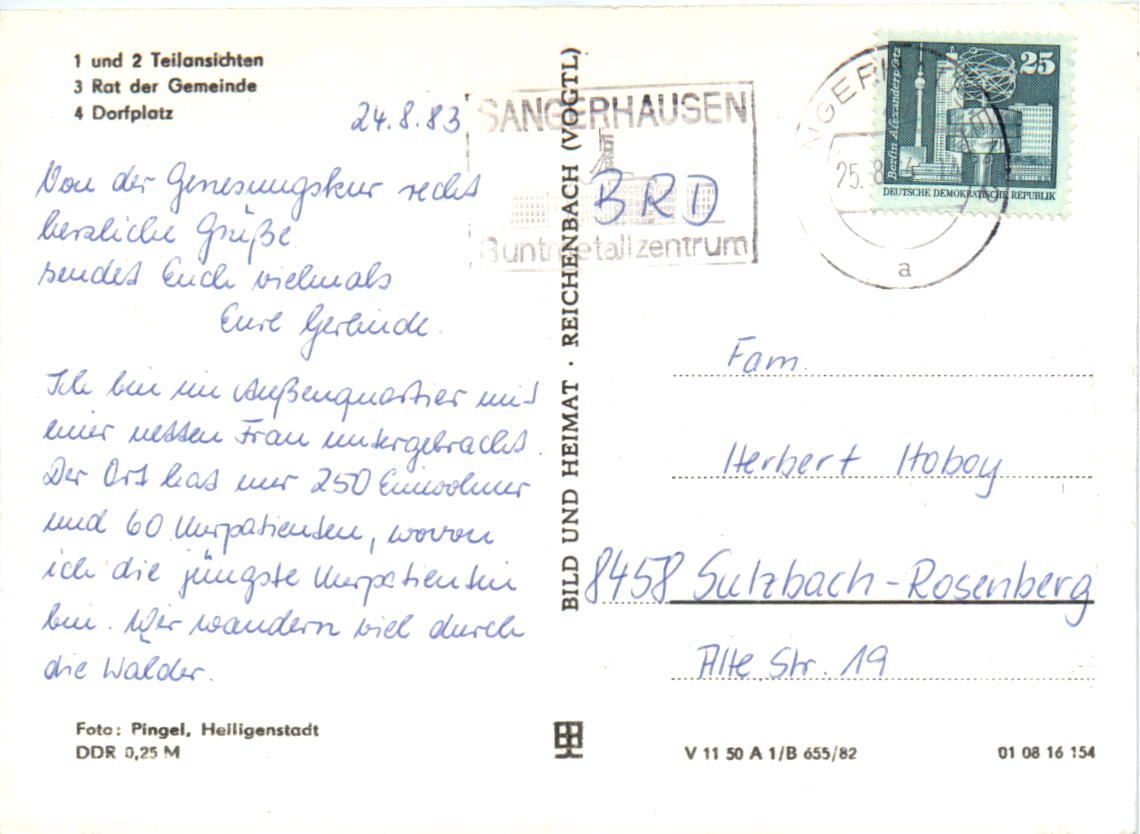 1 und 2 Teilansichten
3 Rat der Gemeinde
4 Dorfplatz
24.8.83
Von der Genesungskur recht
herzliche Grüße
sendet Euch vielmals
Eure Gerlinde.
Ich bin im Außenquartier mit
einer netten Frau untergebracht.
Der Ort hat nur 250 Einwohner
und 60 Kurpatienten, wovon
ich die jüngste Kurpatientin
bin. Wir wandern viel durch
die Wälder.
Foto: Pingel, Heiligenstadt
DDR 0,25 M
BILD UND HEIMAT · REICHENBACH (VOGTL)
SANGERHAUSEN
BRD
Buntmetallzentrum
NGERH
25.8
a
25
Berlin Alexanderplatz
DEUTSCHE DEMOKRATISCHE REPUBLIK
Fam.
Herbert Hoboy
8458 Sulzbach-Rosenberg
Alte Str. 19
V 11 50 A 1/B 655/82
01 08 16 154